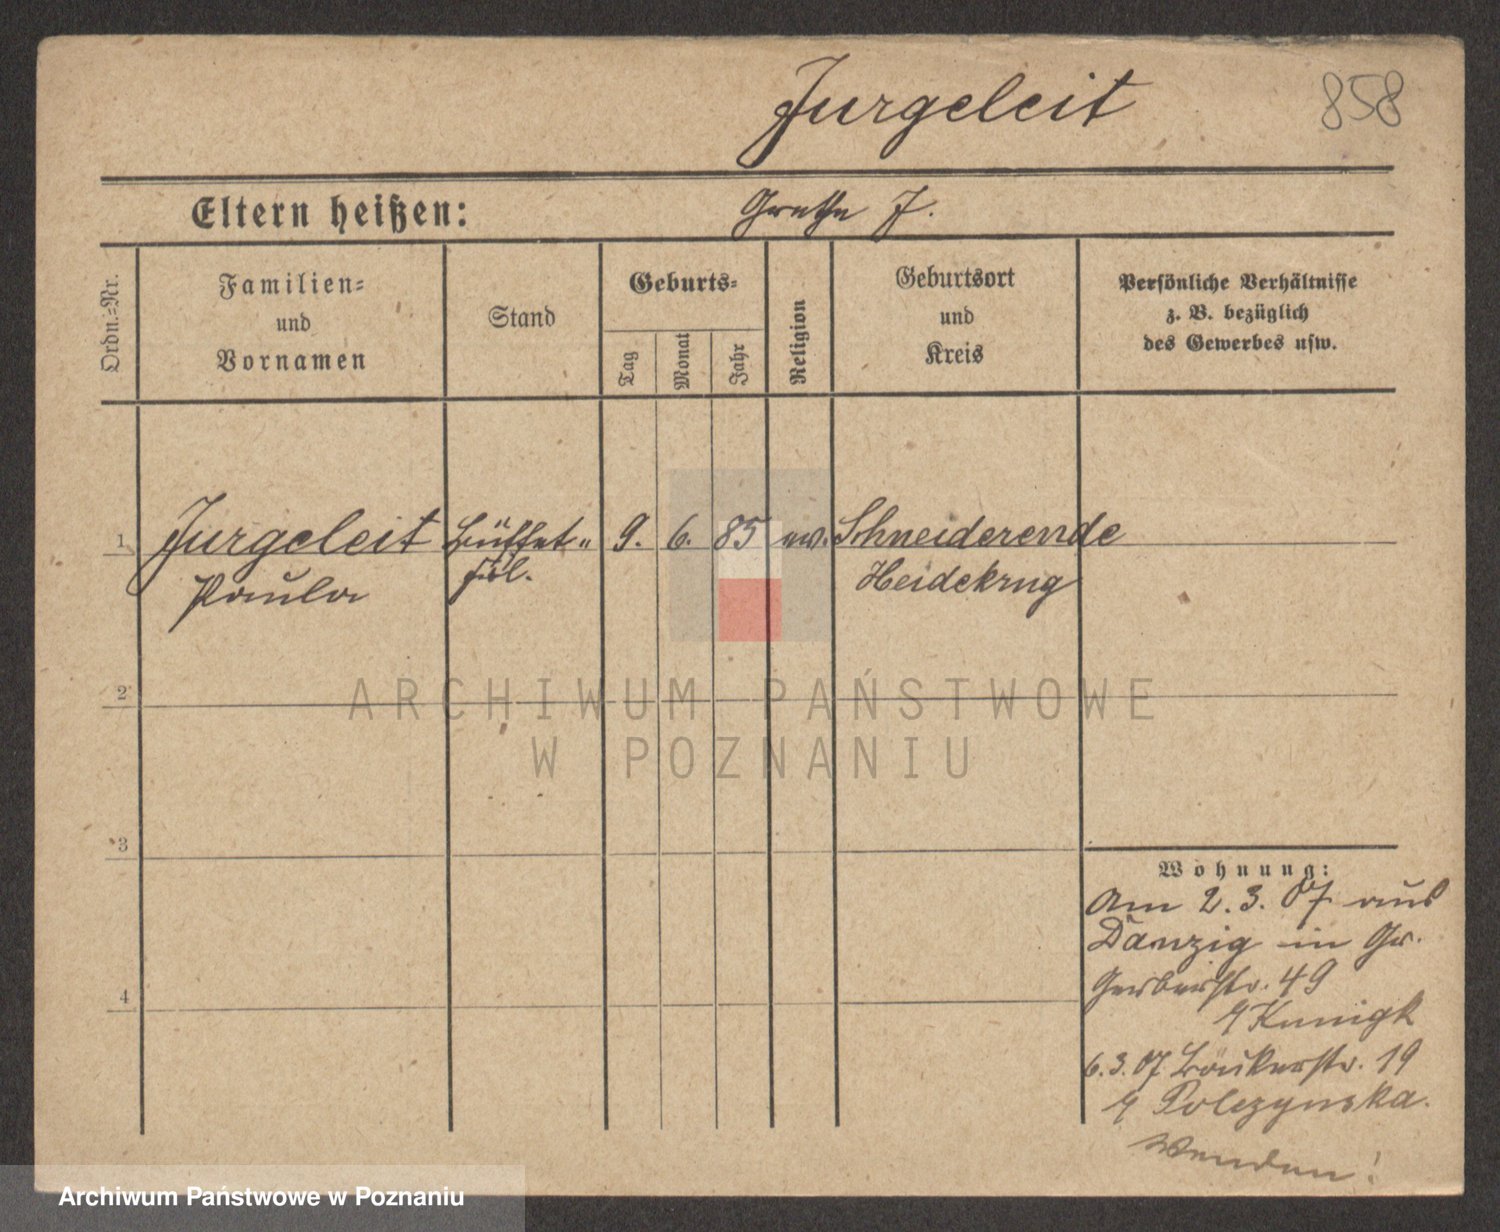 Jurgeleit 858
Eltern heißen: Grethe J.
Ordn.=Nr.
Familien=
und
Vornamen
Stand
Geburts=
Tag
Monat
Jahr
Religion
Geburtsort
und
Kreis
Persönliche Verhältnisse
z. B. bezüglich
des Gewerbes usw.
1 Jurgeleit Büffet= 9. 6. 85 ev. Schneiderende
Paula frl. Heidekrug
2
ARCHIWUM PAŃSTWOWE
W POZNANIU
3
Wohnung:
Am 2. 3. 07 aus
Danzig in Gr.
Gerberstr. 49
Kunigk
6. 3. 07 Bäckerstr. 19
Polczynska.
Wenden!
4
Archiwum Państwowe w Poznaniu